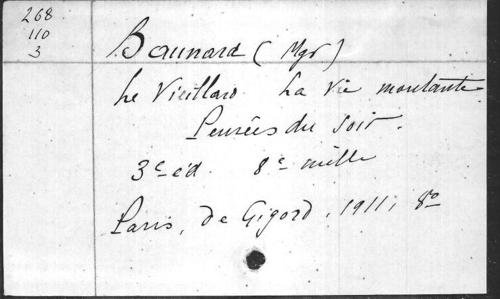 268
110
3
Baunard (Mgr)
Le Vieillard. La Vie montante
Pensées du Soir.
3e éd. 8e mille
Paris, de Gigord, 1911; 8o